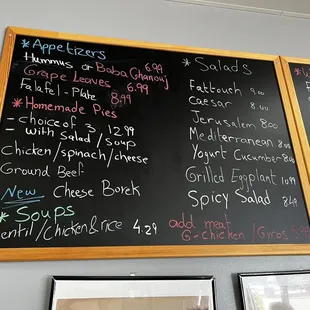 * Appetizers
Hummus or Baba Ghanouj 6.99
Grape Leaves 6.99
Falafel - Plate 8.99
* Homemade Pies
- choice of 3 12.99
- with Salad / Soup
Chicken/spinach/cheese
Ground Beef
New Cheese Borek
* Soups
entil/chicken&rice 4.29
* Salads
Fattoush 9.00
Caesar 8.00
Jerusalem 8.00
Mediterranean 8.00
Yogurt Cucumber 8.00
Grilled Eggplant 10.99
Spicy Salad 8.49
add meat
G-chicken / Gyros 5.99